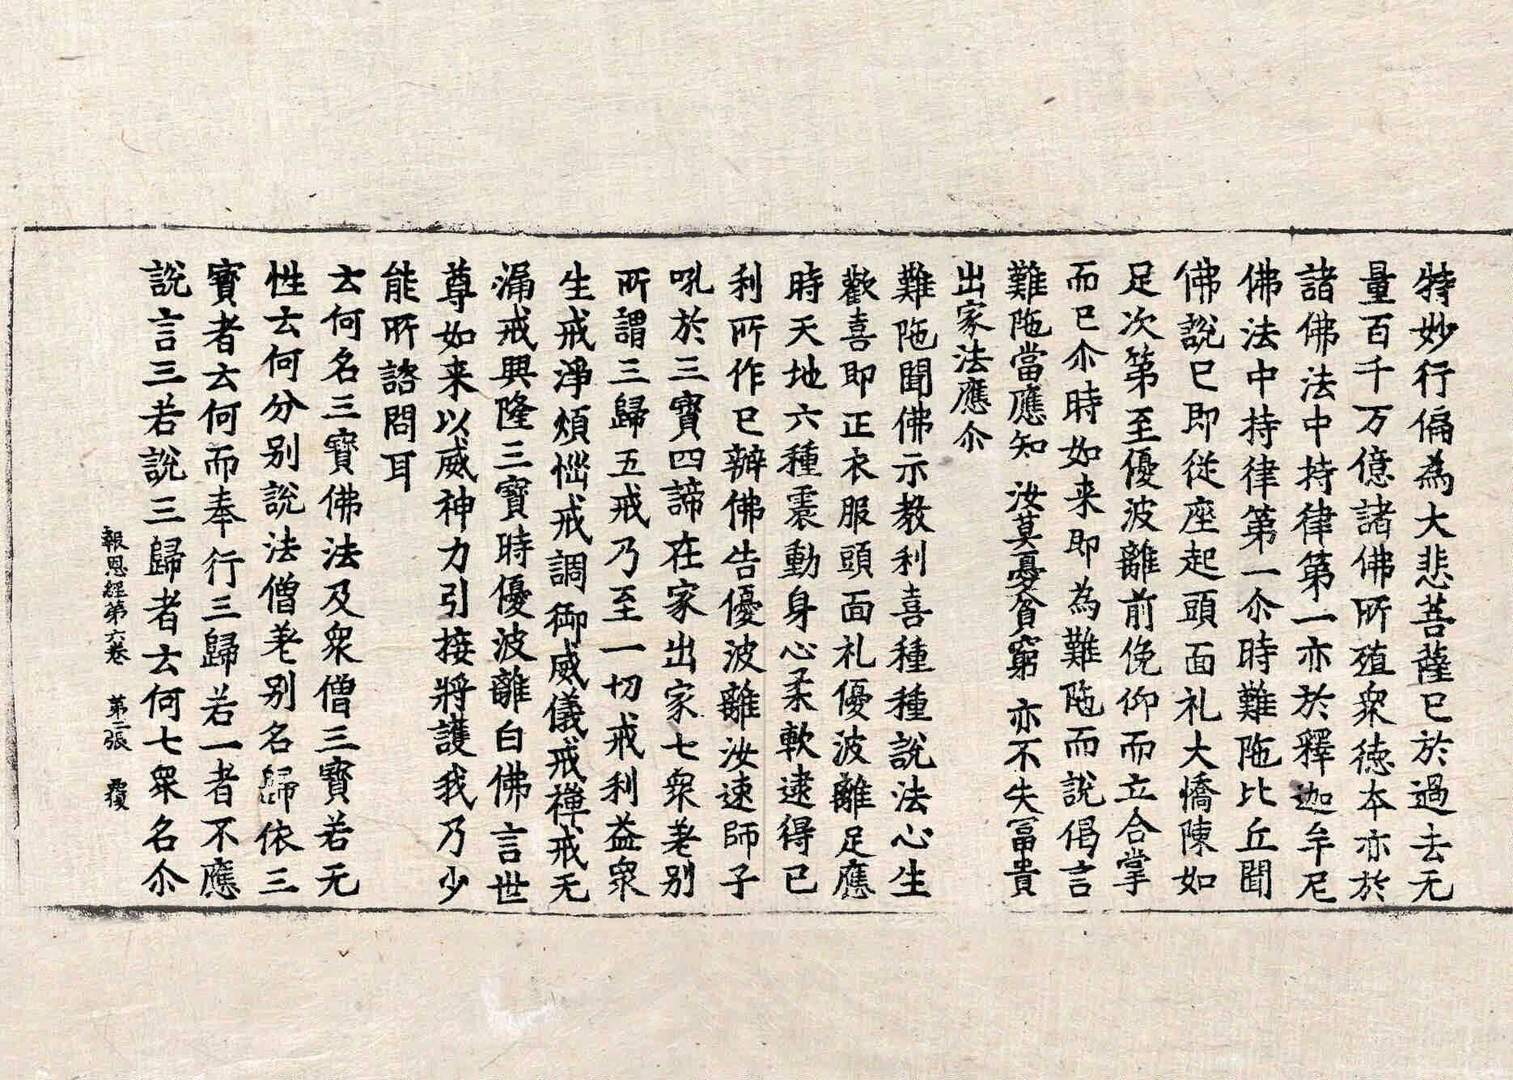 特妙行偏為大悲菩薩已於過去无
量百千万億諸佛所殖衆徳本亦於
諸佛法中持律第一亦於釋迦牟尼
佛法中持律第一尒時難陁比丘聞
佛說已即從座起頭面礼大憍陳如
足次第至優波離前俛仰而立合掌
而已尒時如来即為難陁而說偈言
難陁當應知 汝莫憂貧窮 亦不失冨貴
出家法應尒
難陁聞佛示教利喜種種說法心生
歡喜即正衣服頭面礼優波離足應
時天地六種震動身心柔軟逮得已
利所作已辦佛告優波離汝速師子
吼於三寶四諦在家出家七衆差別
所謂三歸五戒乃至一切戒利益衆
生戒淨煩惱戒調御威儀戒禅戒无
漏戒興隆三寶時優波離白佛言世
尊如来以威神力引接將護我乃少
能所諮問耳
去何名三寶佛法及衆僧三寶若无
性去何分别說法僧差别名歸依三
寳者去何而奉行三歸若一者不應
說言三若說三歸者去何七衆名尒
報恩經第六卷 第二張 覆